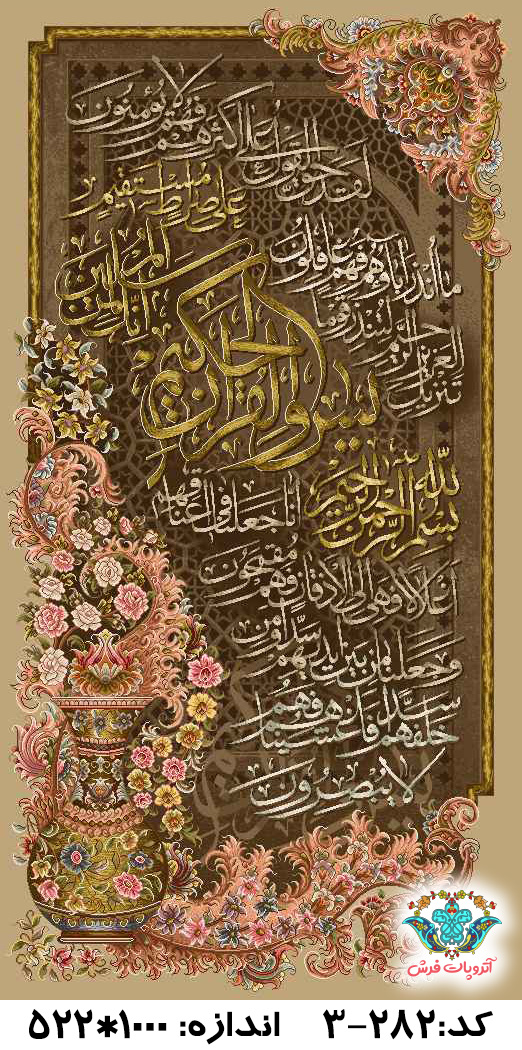 بسم الله الرحمن الرحيم
يس والقرآن الحكيم
إنك لمن المرسلين
على صراط مستقيم
تنزيل العزيز الرحيم
لتنذر قوما
ما أنذر آباؤهم فهم غافلون
لقد حق القول على أكثرهم فهم لا يؤمنون
إنا جعلنا في أعناقهم
أغلالا فهي إلى الأذقان فهم مقمحون
وجعلنا من بين أيديهم سدا ومن
خلفهم سدا فأغشيناهم فهم
لا يبصرون
آتروپات فرش
کد:۲۸۲-۳ اندازه: ۱۰۰۰*۵۲۲